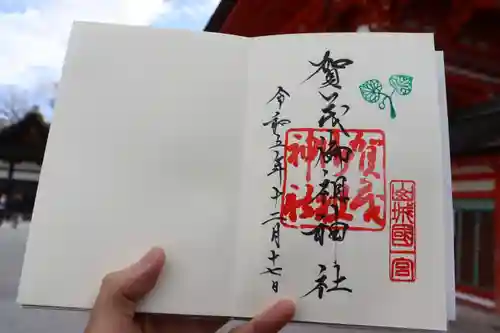 山城國
一宮
賀茂御祖神社
賀茂
御祖
神社
令和五年十二月十七日